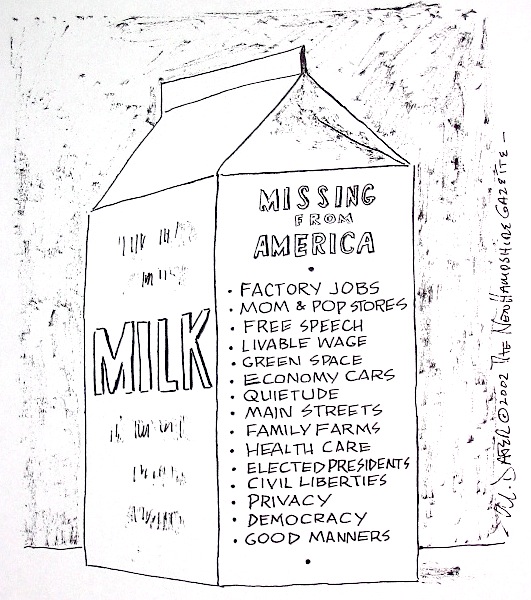 MILK
MISSING
FROM
AMERICA
•
• FACTORY JOBS
• MOM & POP STORES
• FREE SPEECH
• LIVABLE WAGE
• GREEN SPACE
• ECONOMY CARS
• QUIETUDE
• MAIN STREETS
• FAMILY FARMS
• HEALTH CARE
• ELECTED PRESIDENTS
• CIVIL LIBERTIES
• PRIVACY
• DEMOCRACY
• GOOD MANNERS
•
©2002 THE NEW HAMPSHIRE GAZETTE –